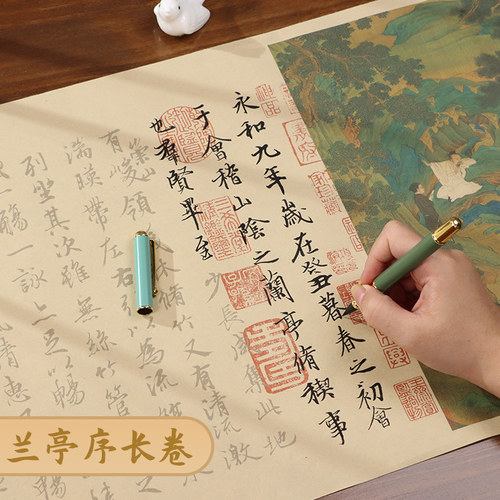 永和九年歲在癸丑暮春之初會
于會稽山陰之蘭亭脩稧事
也羣賢畢至少長咸集此地
有峻領脩竹又有清流激
湍暎帶左右引以為流
列坐其次雖無絲竹管
觴一詠上足以暢
清惠
兰亭序长卷